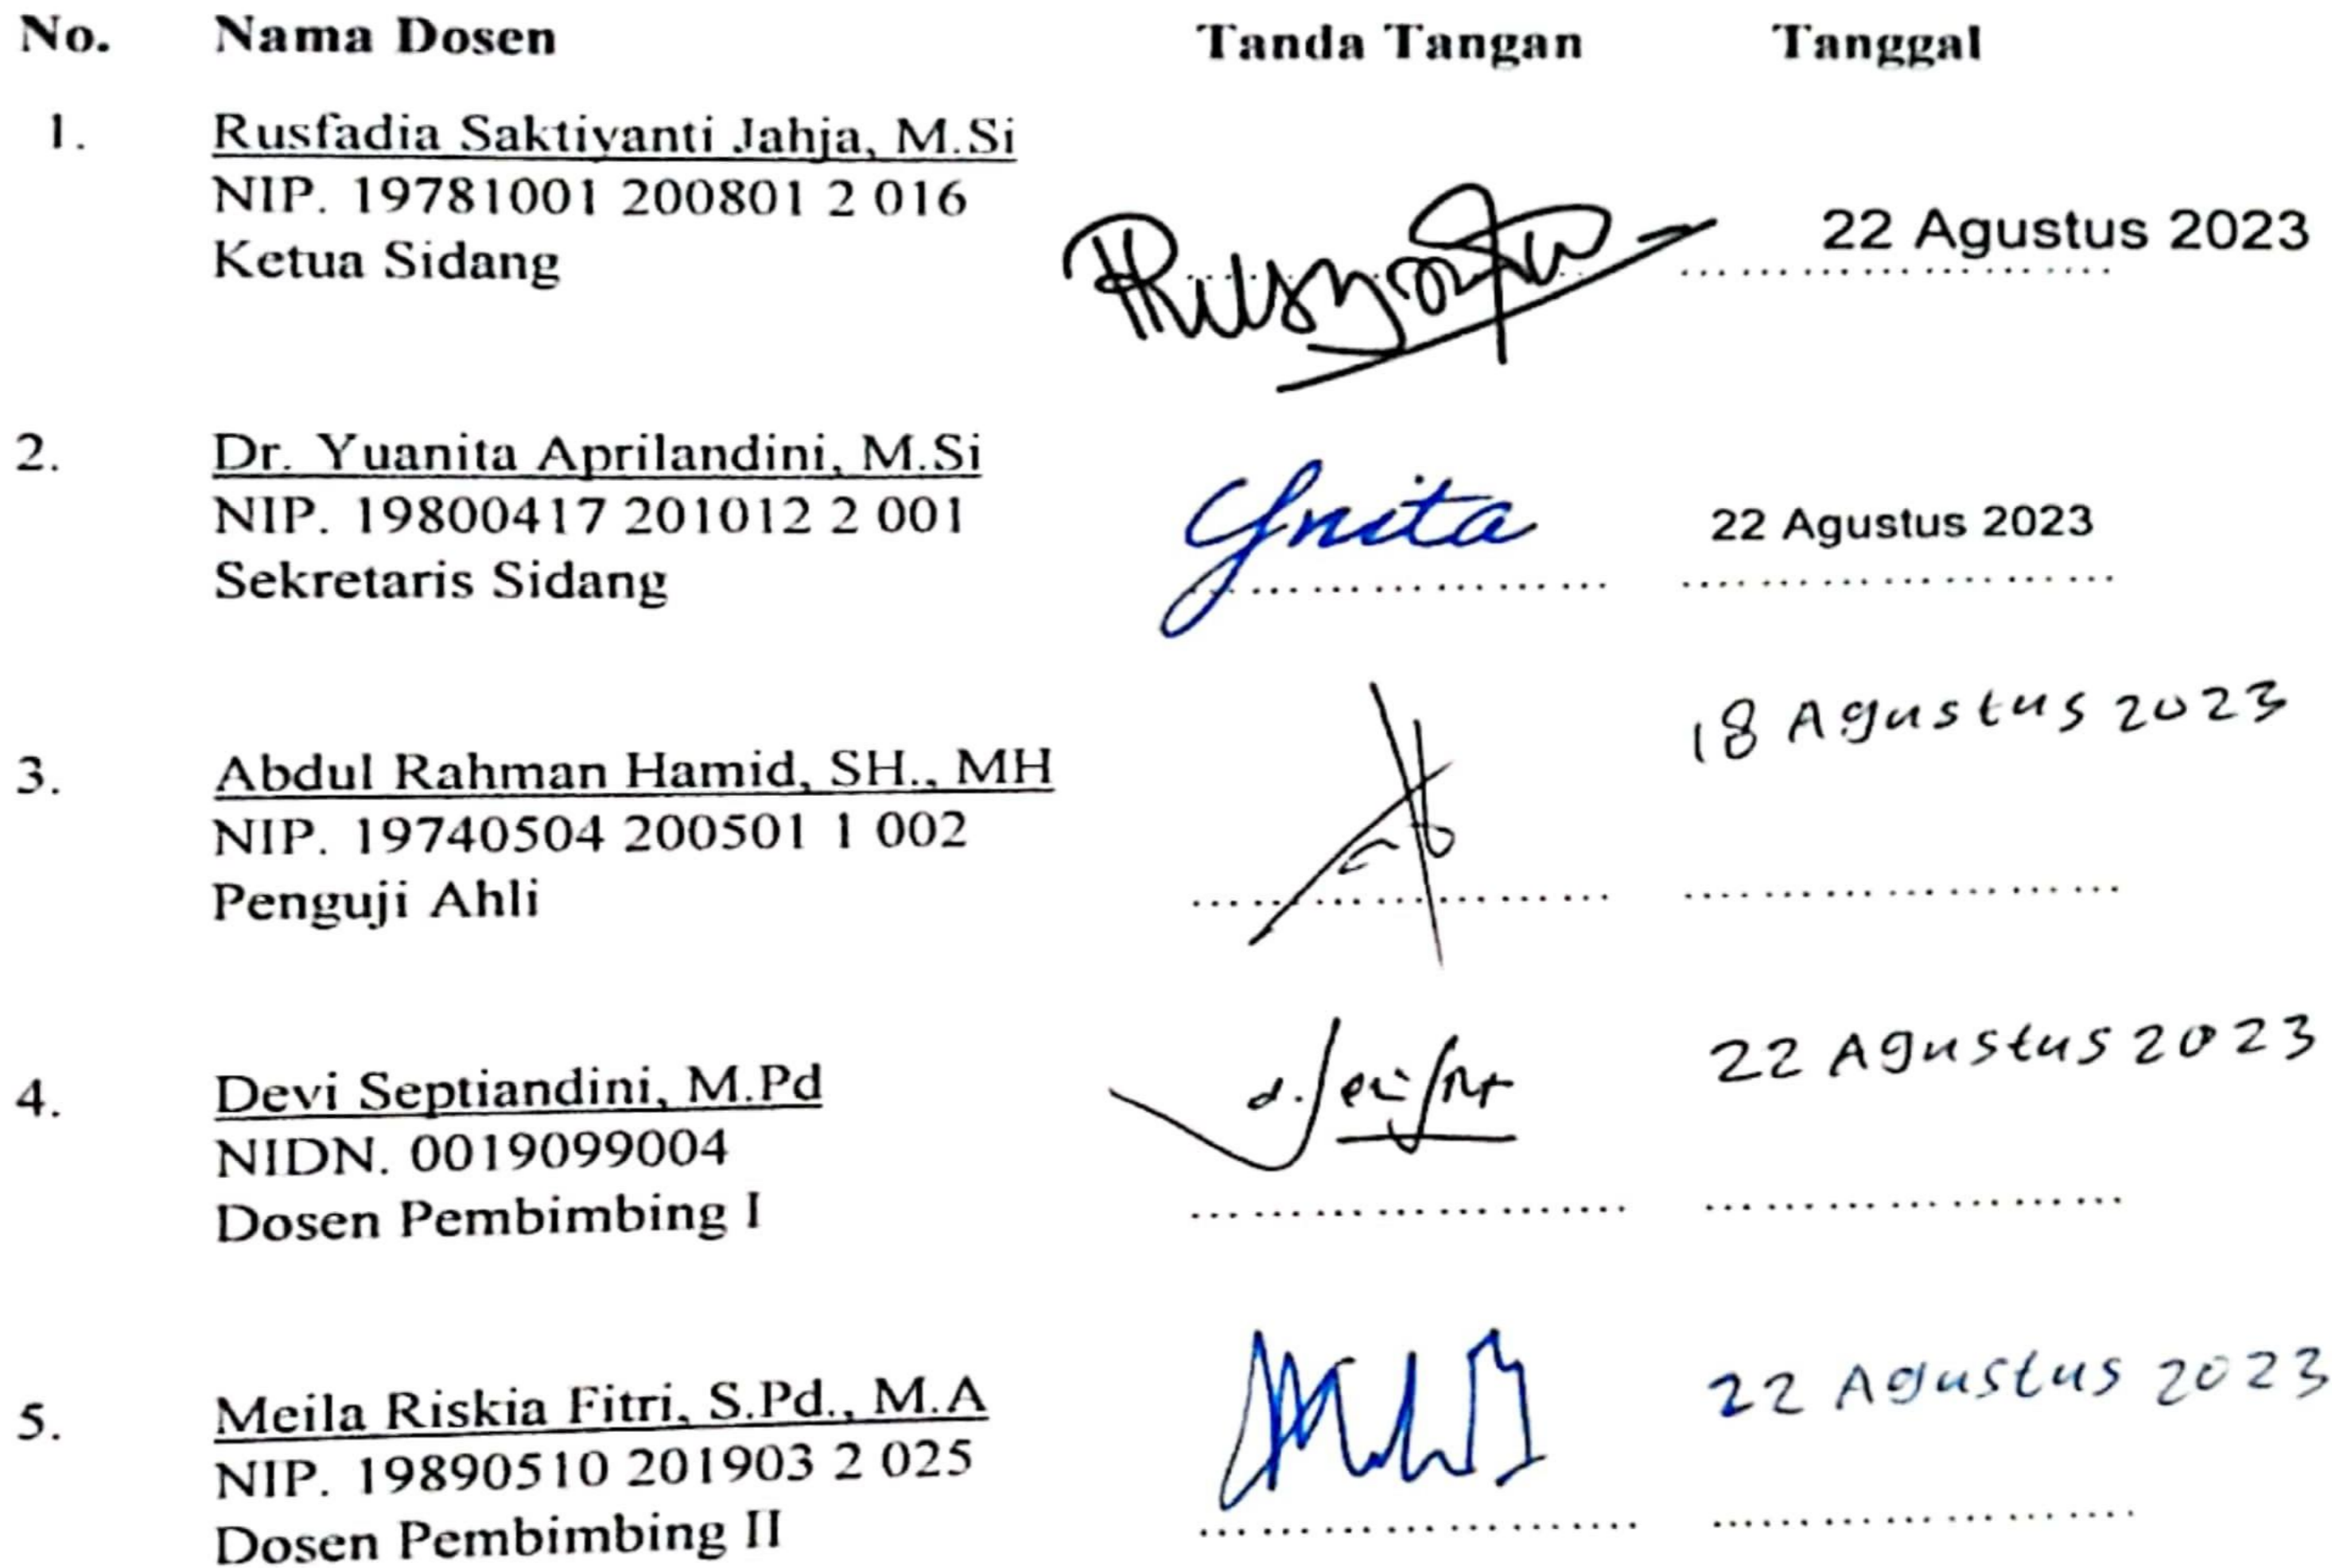 No. Nama Dosen Tanda Tangan Tanggal
1. Rusfadia Saktiyanti Jahja, M.Si
NIP. 19781001 200801 2 016
Ketua Sidang 22 Agustus 2023
2. Dr. Yuanita Aprilandini, M.Si
NIP. 19800417 201012 2 001 Ynita 22 Agustus 2023
Sekretaris Sidang
18 Agustus 2023
3. Abdul Rahman Hamid, SH., MH
NIP. 19740504 200501 1 002
Penguji Ahli
22 Agustus 2023
4. Devi Septiandini, M.Pd
NIDN. 0019099004
Dosen Pembimbing I
22 Agustus 2023
5. Meila Riskia Fitri, S.Pd., M.A
NIP. 19890510 201903 2 025
Dosen Pembimbing II